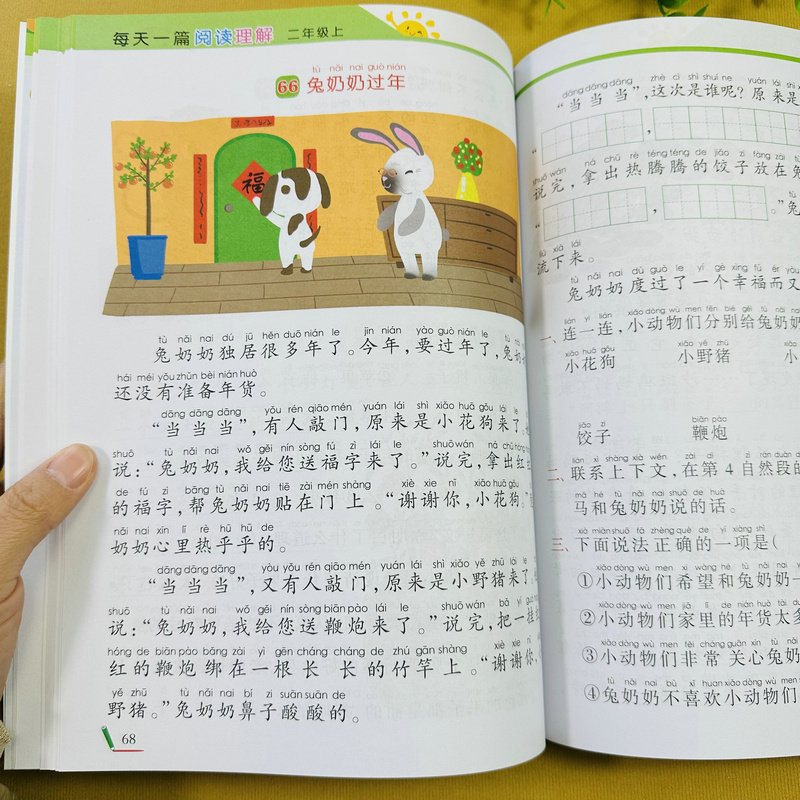 每天一篇 阅读理解 二年级上
tù nǎi nai guò nián
66 兔奶奶过年
福
tù nǎi nai dú jū hěn duō nián le jīn nián yào guò nián le tù
兔奶奶独居很多年了。今年，要过年了，兔
hái méi yǒu zhǔn bèi nián huò
还没有准备年货。
dāng dāng dāng yǒu rén qiāo mén yuán lái shì xiǎo huā gǒu lái le
“当当当”，有人敲门，原来是小花狗来了
shuō tù nǎi nai wǒ gěi nín sòng fú zì lái le shuō wán ná chū
说：“兔奶奶，我给您送福字来了。”说完，拿出
de fú zì bāng tù nǎi nai tiē zài mén shàng xiè xie nǐ xiǎo huā gǒu
的福字，帮兔奶奶贴在门上。“谢谢你，小花狗。”
nǎi nai xīn lǐ rè hū hū de
奶奶心里热乎乎的。
dāng dāng dāng yòu yǒu rén qiāo mén yuán lái shì xiǎo yě zhū lái le
“当当当”，又有人敲门，原来是小野猪来了
shuō tù nǎi nai wǒ gěi nín sòng biān pào lái le shuō wán bǎ yí guà
说：“兔奶奶，我给您送鞭炮来了。”说完，把一挂
hóng de biān pào bǎng zài yì gēn cháng cháng de zhú gān shàng xiè xie nǐ
红的鞭炮绑在一根长长的竹竿上。“谢谢你，
yě zhū tù nǎi nai bí zi suān suān de
野猪。”兔奶奶鼻子酸酸的。
68
dāng dāng dāng zhè cì shì shuí ne yuán lái shì
“当当当”，这次是谁呢？原来是
“ ，
shuō wán ná chū rè téng téng de jiǎo zi fàng zài
说完，拿出热腾腾的饺子放在兔
“ ， 。”兔
liú xià lái
流下来。
tù nǎi nai dù guò le yí gè xìng fú ér yòu
兔奶奶度过了一个幸福而又
lián yì lián xiǎo dòng wù men fēn bié gěi tù nǎi nai
一、连一连，小动物们分别给兔奶奶
xiǎo huā gǒu xiǎo yě zhū
小花狗 小野猪
jiǎo zi biān pào
饺子 鞭炮
lián xì shàng xià wén zài dì zì rán duàn
二、联系上下文，在第4自然段的
mǎ hé tù nǎi nai shuō de huà
马和兔奶奶说的话。
xià miàn shuō fǎ zhèng què de yí xiàng shì
三、下面说法正确的一项是（
xiǎo dòng wù men xī wàng hé tù nǎi nai
①小动物们希望和兔奶奶一
xiǎo dòng wù men jiā lǐ de nián huò tài duō
②小动物们家里的年货太多
xiǎo dòng wù men fēi cháng guān xīn tù nǎi
③小动物们非常关心兔奶
tù nǎi nai bù xǐ huan xiǎo dòng wù men
④兔奶奶不喜欢小动物们